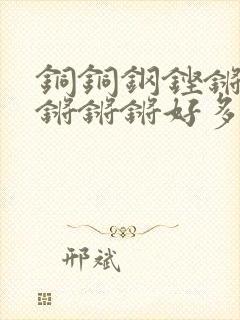 銅銅鋼鏗鏘
鏘鏘鏘好多
邢斌